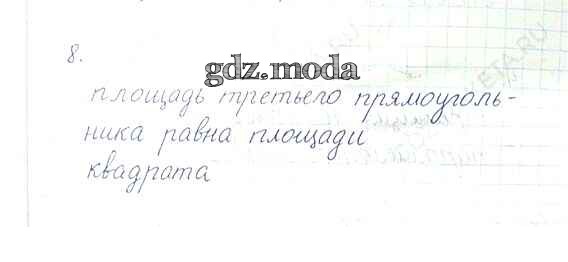 8.
gdz.moda
площадь третьего прямоуголь-
ника равна площади
квадрата